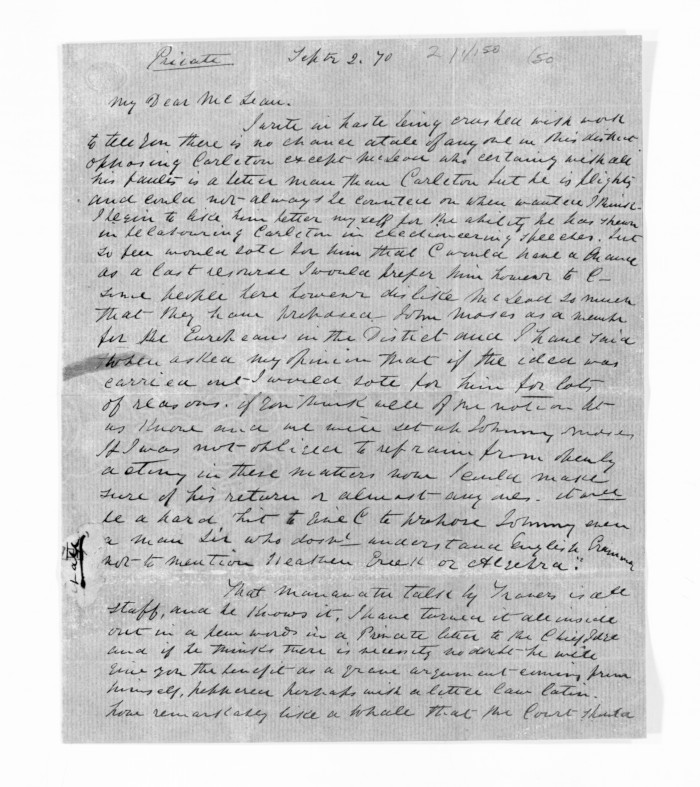 Private Septr 2. 70 2/1/150 (50
My Dear McLean.
I write in haste being crushed with work
to tell you there is no chance atale of anyone in this district
opposing Carleton except McLeod who certainly with all
his faults is a better man than Carleton but he is flighty
and could not always be counted on when wanted I think.
I begin to like him better myself for the ability he has shewn
in belabouring Carleton in electioneering speeches. but
so few would vote for him that C would have a chance
as a last resourse I would prefer him however to C—
some people here however dislike McLeod so much
that they have proposed John Moses as a member
for the Eurekeans in the District and I have said
when asked my opinion that if the idea was
carried out I would vote for him for lots
of reasons. if you think well of the notion let
us know and we will set up Johnny Moses
If I was not obliged to refrain from openly
acting in these matters now I could make
sure of his return or almost any ones. it will
be a hard hit to Give C to propose Johnny even
a man Sir who dosn't understand English Grammar
not to mention Heathen Greek or Algebra"
That talk by Travers is all
staff, and he knows it, I have turned it all inside
out in a few words in a Private letter to the Chief Jdge
and if he thinks there is necessity no doubt he will
Give you the benefit as a grave argument coming from
himself, peppered perhaps with a little law latin.
how remarkably like a Whale that the Court should